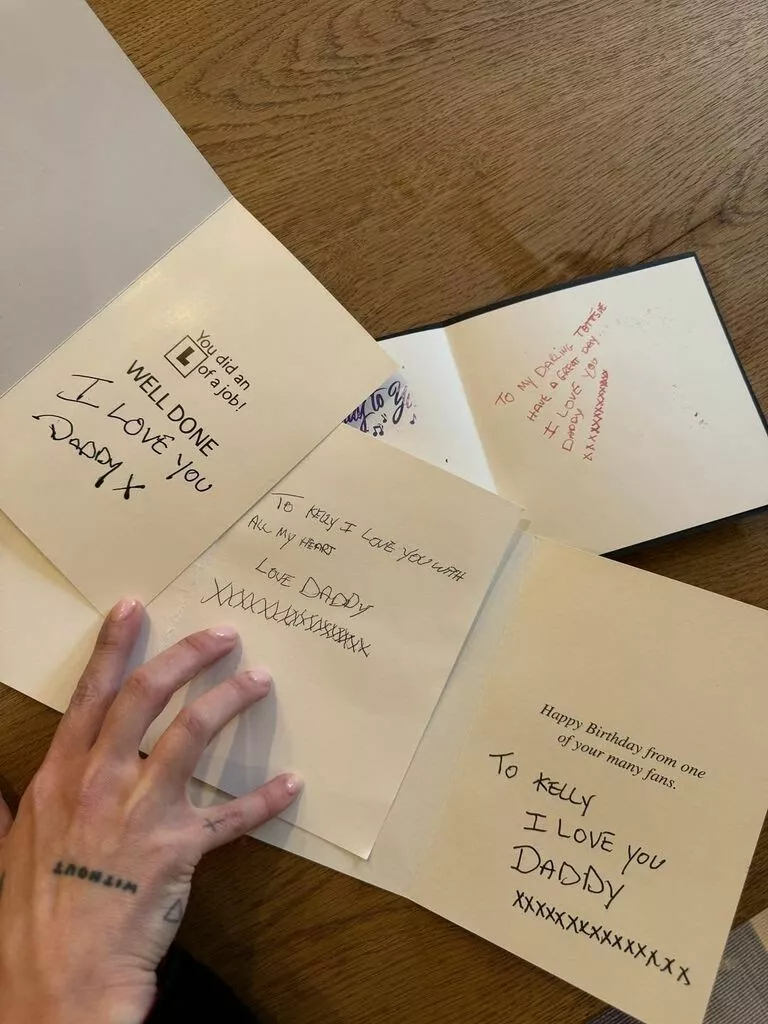 You did an
L of a job!
WELL DONE
I LOVE YOU
DADDY X
to
TO MY DARLING
HAVE A GREAT DAY
I LOVE YOU
DADDY
XXXXXXXXXXXX
TO KELLY I LOVE YOU WITH
ALL MY HEART
LOVE DADDY
XXXXXXXXXXXXXXXX
Happy Birthday from one
of your many fans.
TO KELLY
I LOVE YOU
DADDY
XXXXXXXXXXXXXXX
WITHOUT